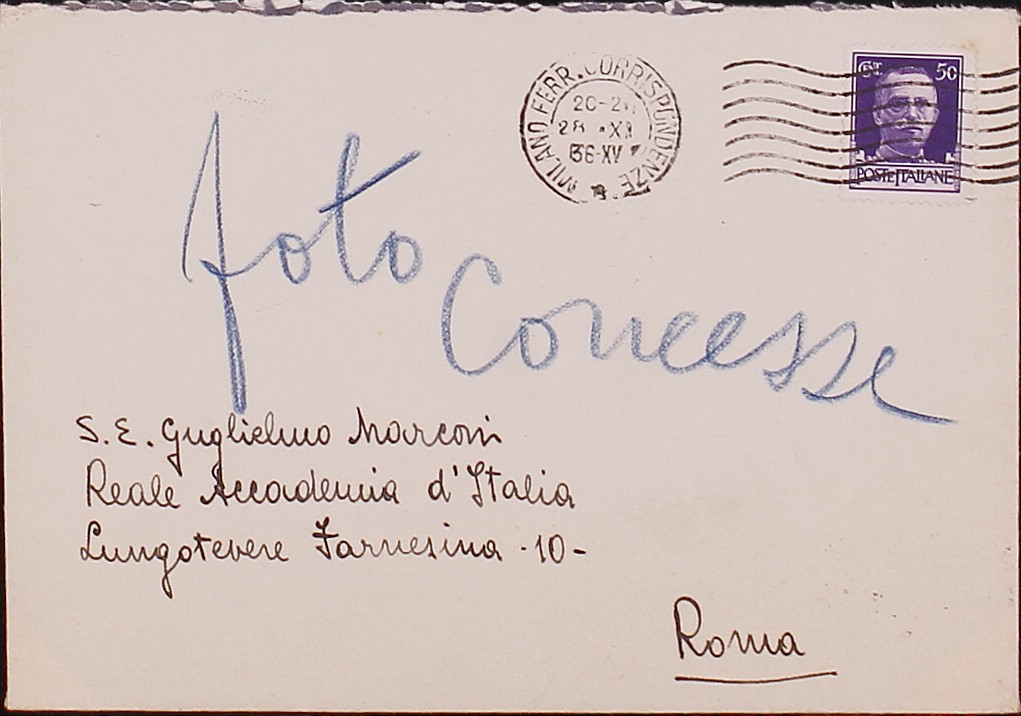 MILANO FERR. CORRISPONDENZE
20-21
28 XI
36-XV
CT. 50
POSTE ITALIANE
foto Concesse
S. E. Guglielmo Marconi
Reale Accademia d'Italia
Lungotevere Farnesina -10-
Roma